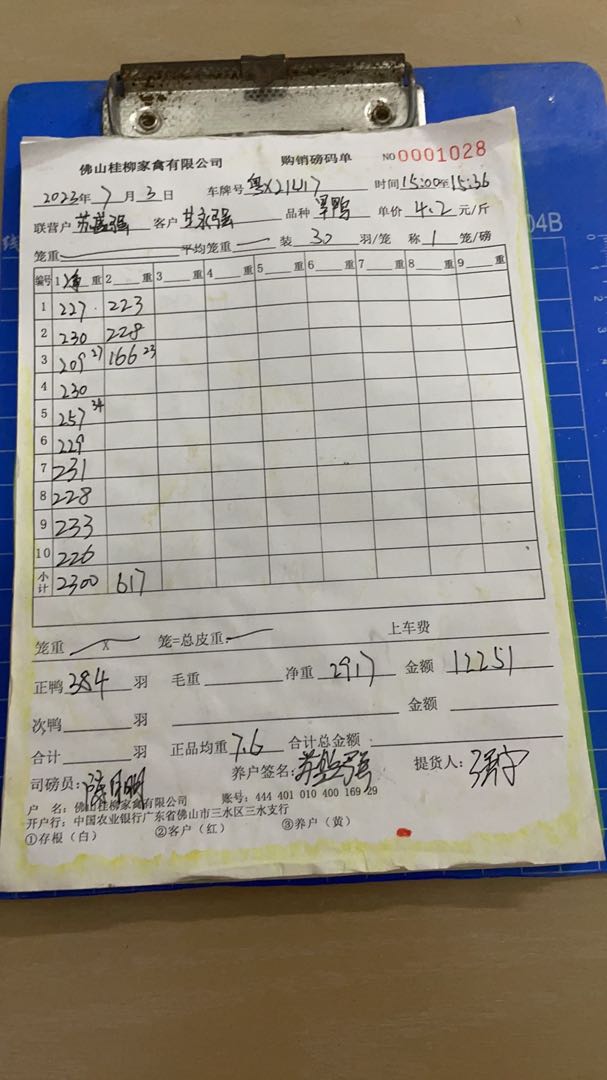 佛山桂柳家禽有限公司 购销磅码单 NO 0001028
2023年7月3日 车牌号 粤X21U17 时间 15:00至15:36
联营户 苏益强 客户 品种 单价 4.2 元/斤
笼重 平均笼重 装 30 羽/笼 称 1 笼/磅
编号 1 净 重 2 重 3 重 4 重 5 重 6 重 7 重 8 重 9 重
1 227 223
2 230 228
3 209 27 166 23
4 230
5 257 34
6 229
7 231
8 228
9 233
10 226
小计 2300 617
笼重 x 笼=总皮重: 上车费
正鸭 384 羽 毛重 净重 2917 金额 12251
次鸭 羽 金额
合计 羽 正品均重 7.6 合计总金额
司磅员: 养户签名: 苏益强 提货人:
户 名: 佛山桂柳家禽有限公司 账号: 444 401 010 400 169 29
开户行: 中国农业银行广东省佛山市三水区三水支行
①存根(白) ②客户(红) ③养户(黄)
04B